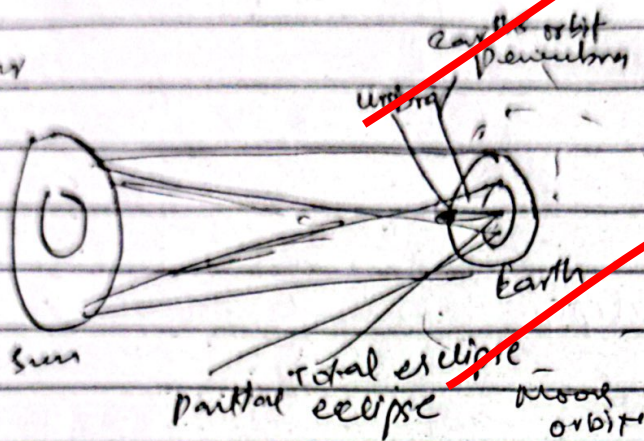 earth's orbit
penumbra
umbra
Earth
Sun
Total esclipse
partial eclipse
Moon
orbit